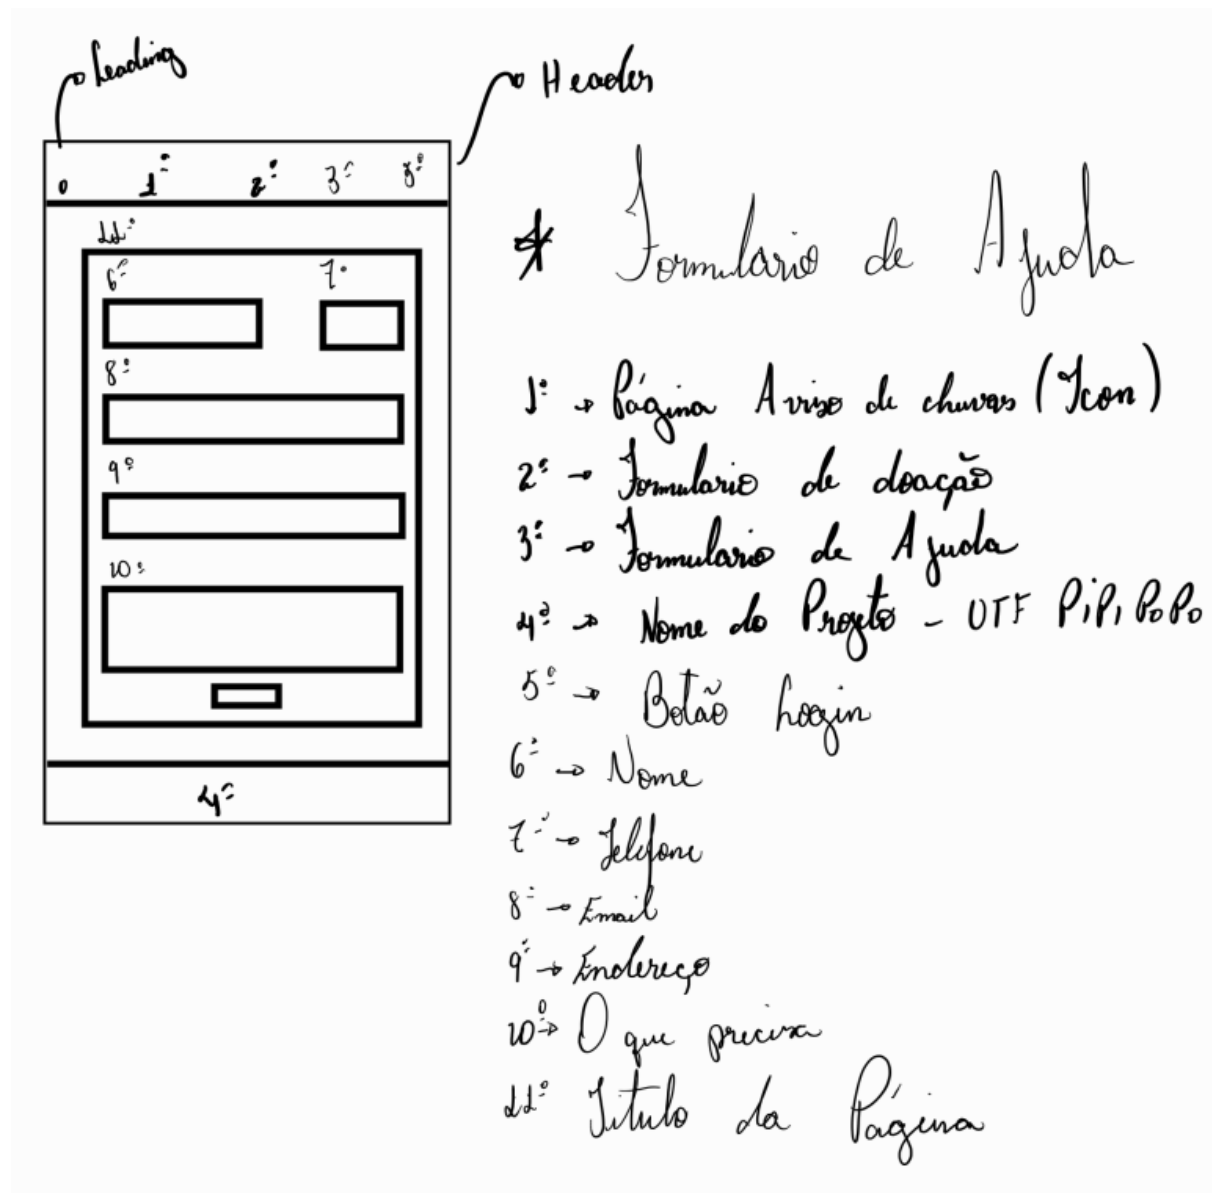 Leading
Header
0 1º 2º 3º 5º
11º
6º 7º
8º
9º
10º
4º
* Formulario de Ajuda
1º → Página Aviso de chuvas (Icon)
2º → Formulario de doação
3º → Formulario de Ajuda
4º → Nome do Projeto - UTF PiPi PoPo
5º → Botão Login
6º → Nome
7º → Telefone
8º → Email
9º → Endereço
10º → O que precisa
11º Titulo da Página